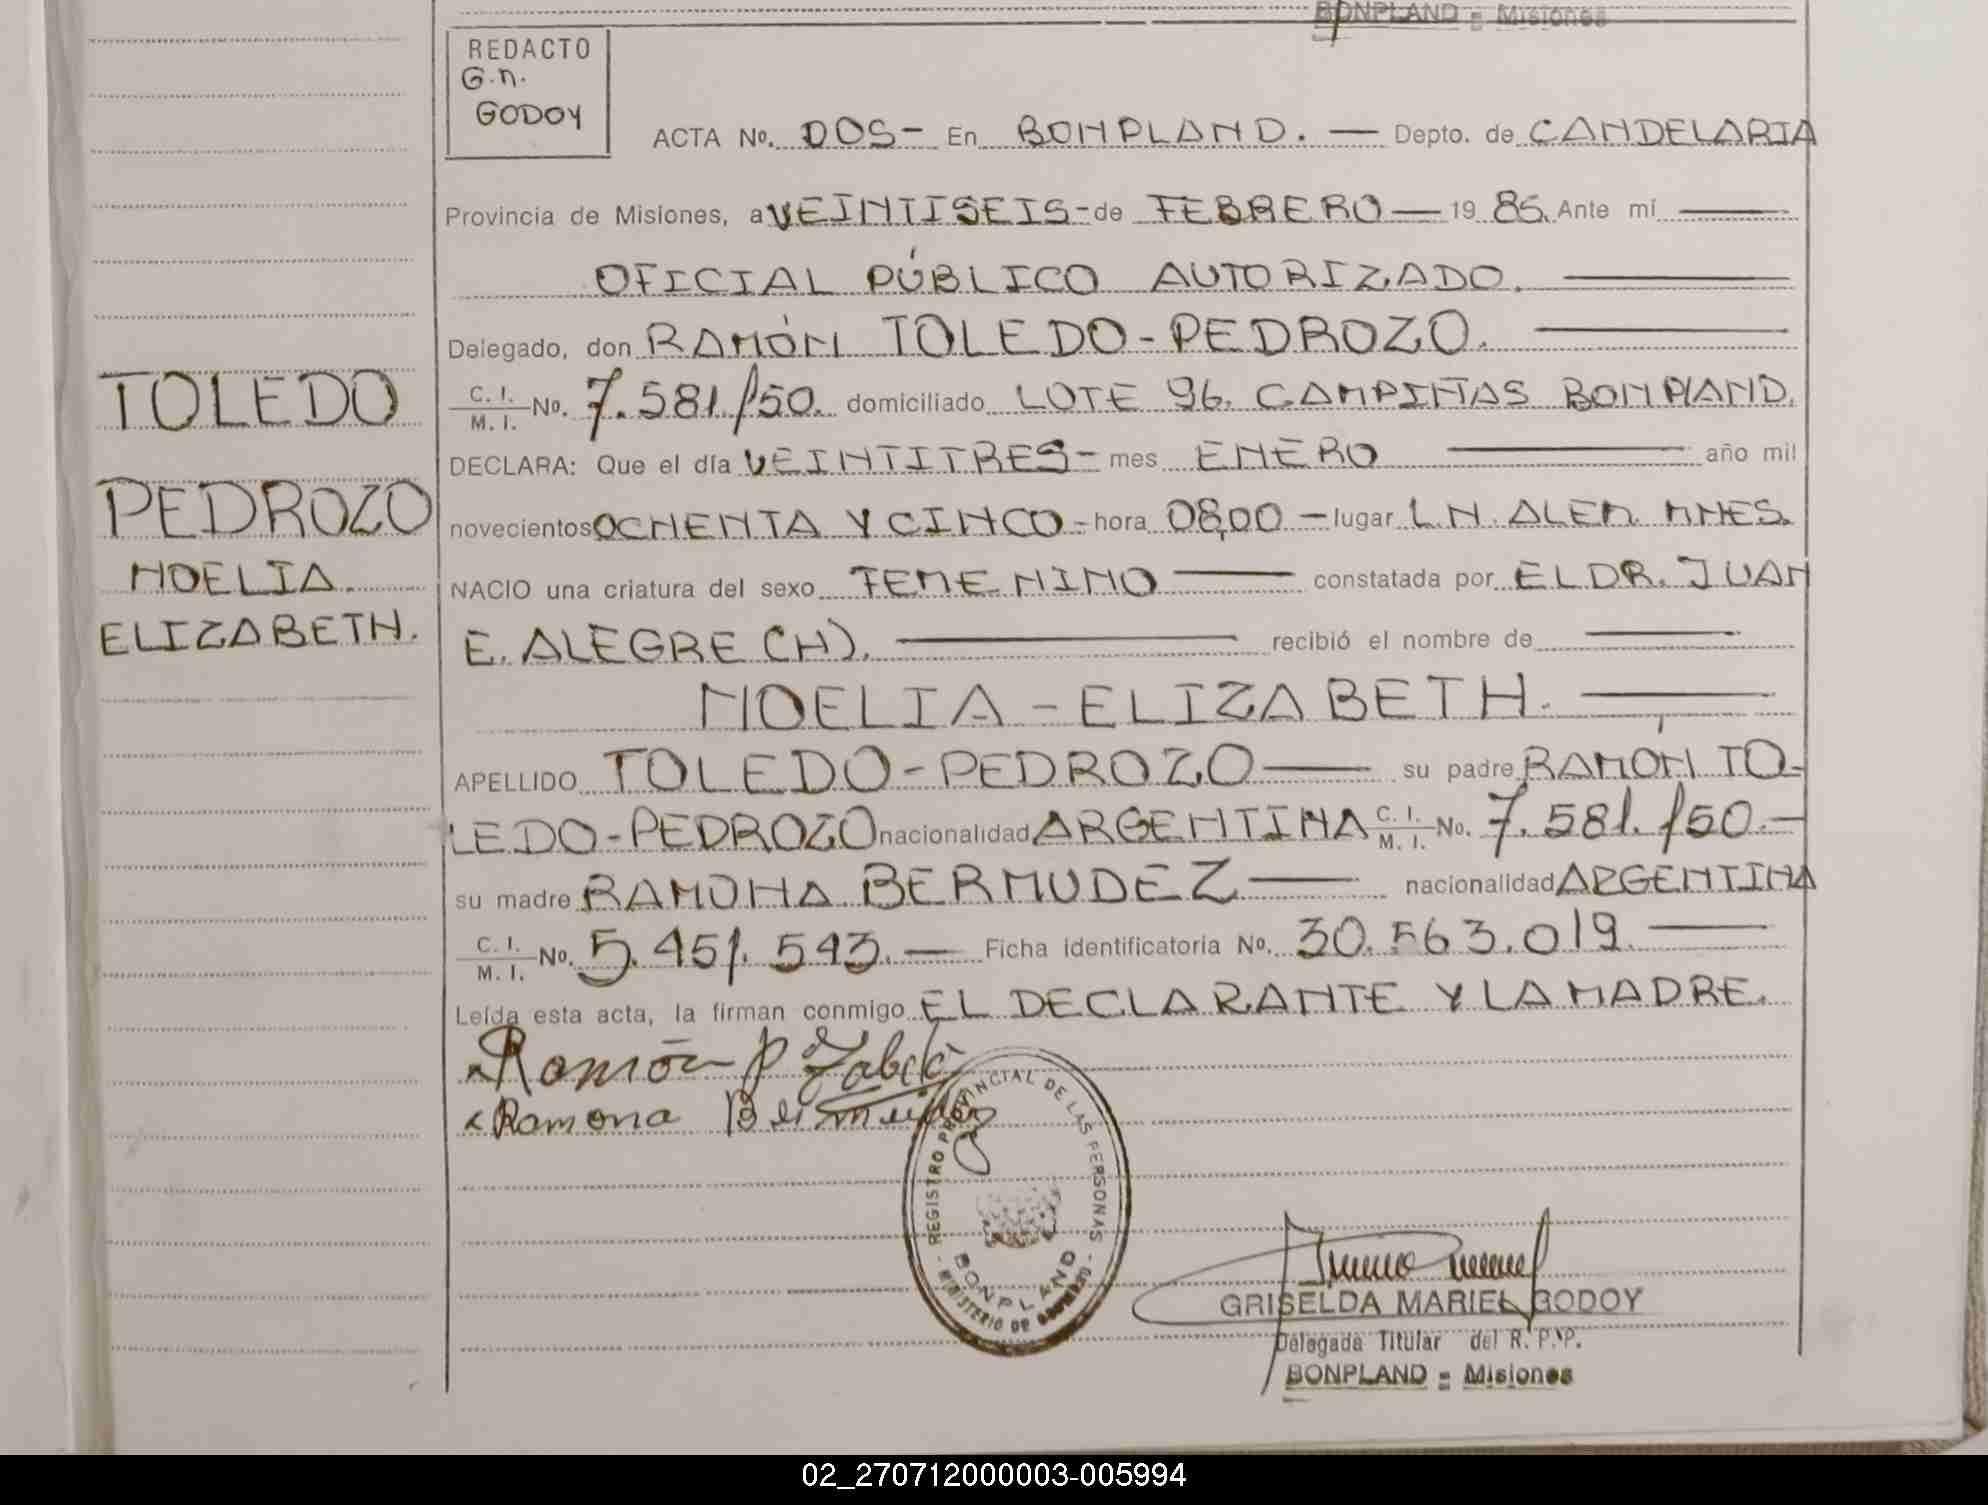 BONPLAND = Misiones
REDACTO
G.M.
GODOY
ACTA No. DOS- En BONPLAND. — Depto. de CANDELARIA
Provincia de Misiones, a VEINTISEIS- de FEBRERO — 19 85. Ante mí —
OFICIAL PÚBLICO AUTORIZADO. —
Delegado, don RAMÓN TOLEDO-PEDROZO. —
C. I. / M. I. No. 7.581.150. domiciliado LOTE 96. CAMPIÑAS BONPLAND.
DECLARA: Que el día VEINTITRES- mes ENERO — año mil
novecientos OCHENTA Y CINCO- hora 08,00 — lugar L.N. ALEM. MNES.
NACIO una criatura del sexo FEMENINO — constatada por EL DR. JUAN
E. ALEGRE (H). — recibió el nombre de —
NOELIA-ELIZABETH. —
APELLIDO TOLEDO-PEDROZO — su padre RAMÓN TO-
LEDO-PEDROZO nacionalidad ARGENTINA C. I. / M. I. No. 7.581.150.—
su madre RAMONA BERMUDEZ — nacionalidad ARGENTINA
C. I. / M. I. No. 5.451.543. — Ficha identificatoria No. 30.563.019. —
Leída esta acta, la firman conmigo EL DECLARANTE Y LA MADRE.
TOLEDO
PEDROZO
NOELIA.
ELIZABETH.
Ramón P
Ramona Bermudez
REGISTRO PROVINCIAL DE LAS PERSONAS
BONPLAND
MINISTERIO DE GOBIERNO
GRISELDA MARIEL GODOY
Delegada Titular del R. P. P.
BONPLAND = Misiones
02_270712000003-005994